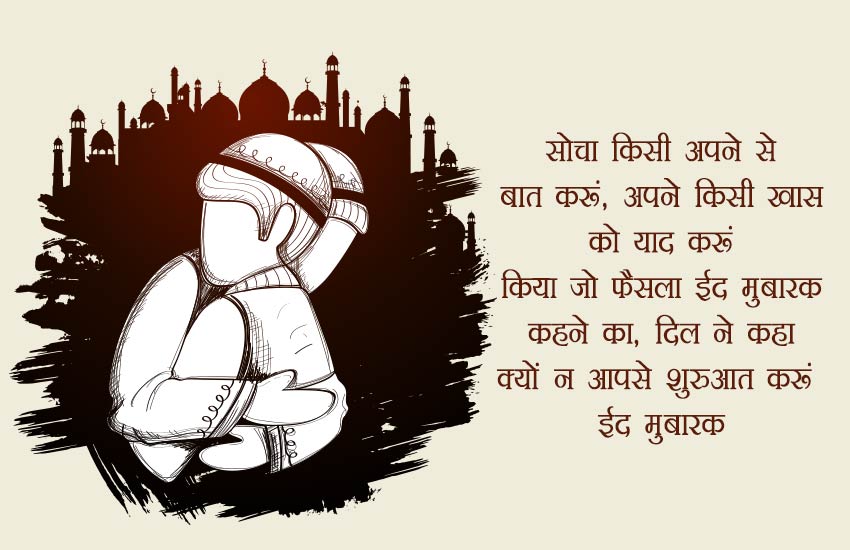 सोचा किसी अपने से
बात करूं, अपने किसी खास
को याद करूं
किया जो फैसला ईद मुबारक
कहने का, दिल ने कहा
क्यों न आपसे शुरुआत करूं
ईद मुबारक